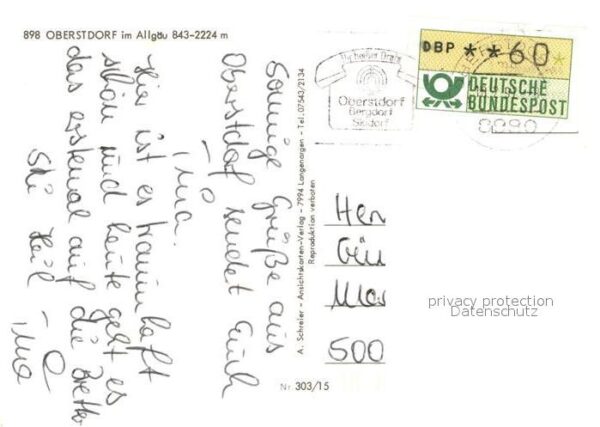 898 OBERSTDORF im Allgäu 843-2224 m
Sonnige Grüße aus
Oberstdorf sendet Euch
Tina.
Hier ist es traumhaft
schön und heute geht es
das erstemal auf die Bretter
Ski Heil -
Tina
A. Schreier - Ansichtskarten-Verlag - 7994 Langenargen - Tel. 07543/2134
Reproduktion verboten
Nr. 303/15
Oberstdorf
Bergdorf
Skidorf
DBP **60*
DEUTSCHE
BUNDESPOST
Her
Gün
500
privacy protection
Datenschutz